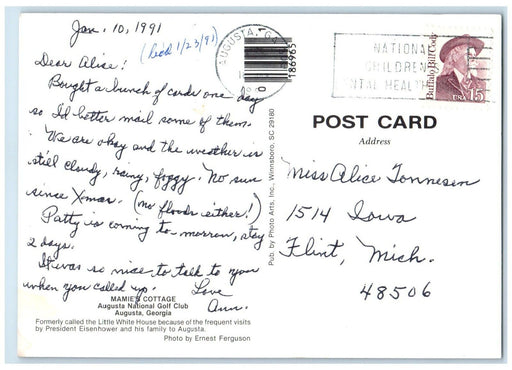 Jan. 10, 1991
(Rec'd 1/23/91)
Dear Alice:
Bought a bunch of cards one day
so I'd better mail some of them.
We are okay and the weather is
still cloudy, rainy, foggy. No sun
since Xmas. (no floods either!)
Patty is coming to-morrow, stay
2 days.
It was so nice to talk to you
when you called up. Love
Ann.
MAMIE'S COTTAGE
Augusta National Golf Club
Augusta, Georgia
Formerly called the Little White House because of the frequent visits
by President Eisenhower and his family to Augusta.
Photo by Ernest Ferguson
Pub. by Photo Arts, Inc., Winnsboro, SC 29180
186965
AUGUSTA, GA
NATIONAL
CHILDREN
NTAL HEALTH
Buffalo Bill Cody
USA 15
POST CARD
Address
Miss Alice Tonnesen
1514 Iowa
Flint, Mich.
48506